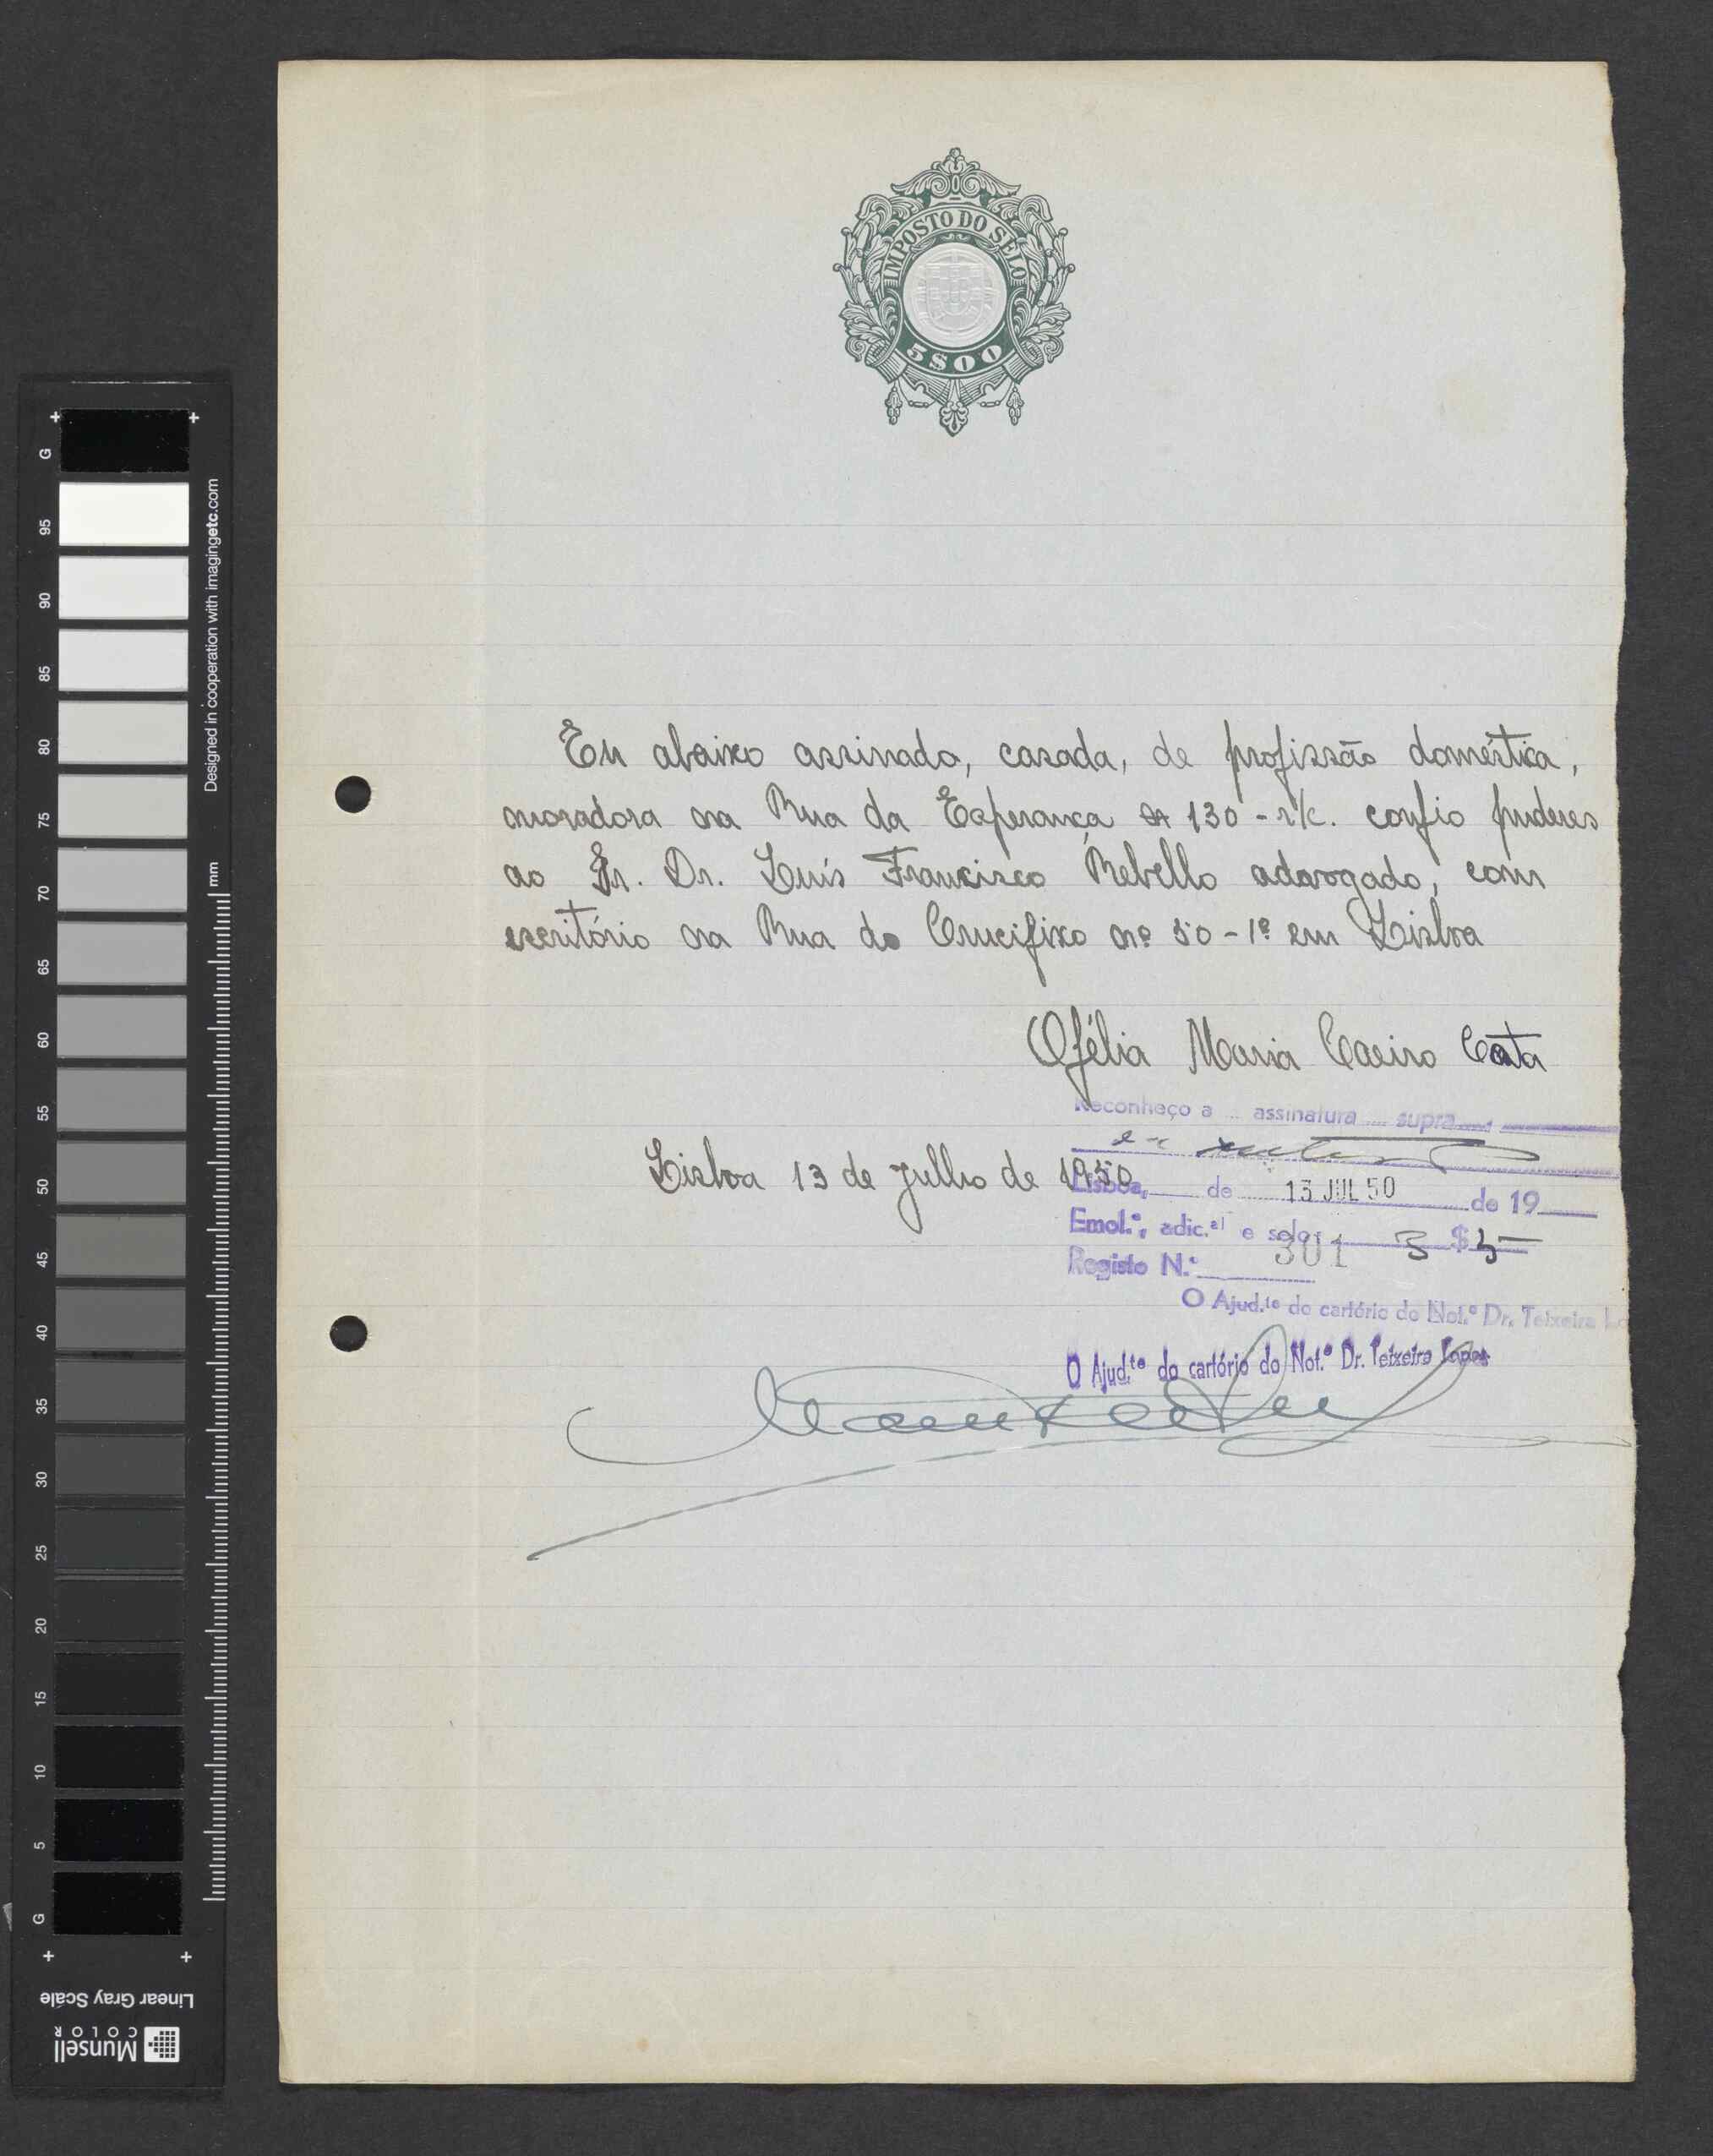 IMPOSTO DO SELO
5$00
Eu abaixo assinado, casada, de profissão doméstica,
moradora na Rua da Esperança 130 - r/c. confio puderes
ao Sr. Dr. Luís Francisco Rebello adavogado, com
escritório na Rua do Crucifixo nº 50 - 1º em Lisboa
Ofélia Maria Caeiro Cata
Reconheço a assinatura supra
Lisboa 13 de Julho de 1950
Lisboa, de 13 JUL 50 de 19
Emol.º, adic.al e selo 3 $ 5
Registo N.º 301
O Ajud.te do cartório do Not.º Dr. Teixeira Lo
O Ajud.te do cartório do Not.º Dr. Teixeira Lopes
G 95 90 85 80 75 70 65 60 55 50 45 40 35 30 25 20 15 10 5 G
Designed in cooperation with imagingetc.com
mm
Linear Gray Scale
Munsell
COLOR